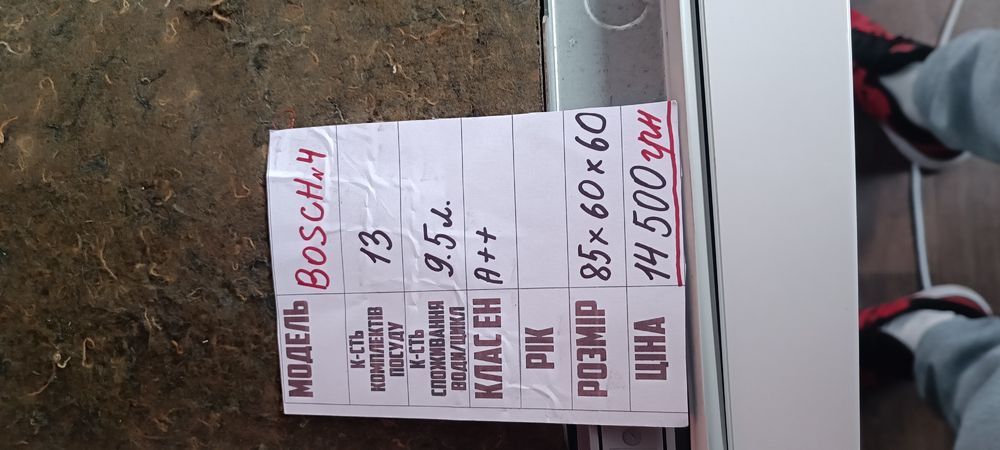 МОДЕЛЬ BOSCH №4
К-СТЬ
КОМПЛЕКТІВ
ПОСУДУ 13
К-СТЬ
СПОЖИВАННЯ
ВОДИ/ЦИКЛ 9.5л.
КЛАС ЕН A++
РІК
РОЗМІР 85х60х60
ЦІНА 14 500 грн